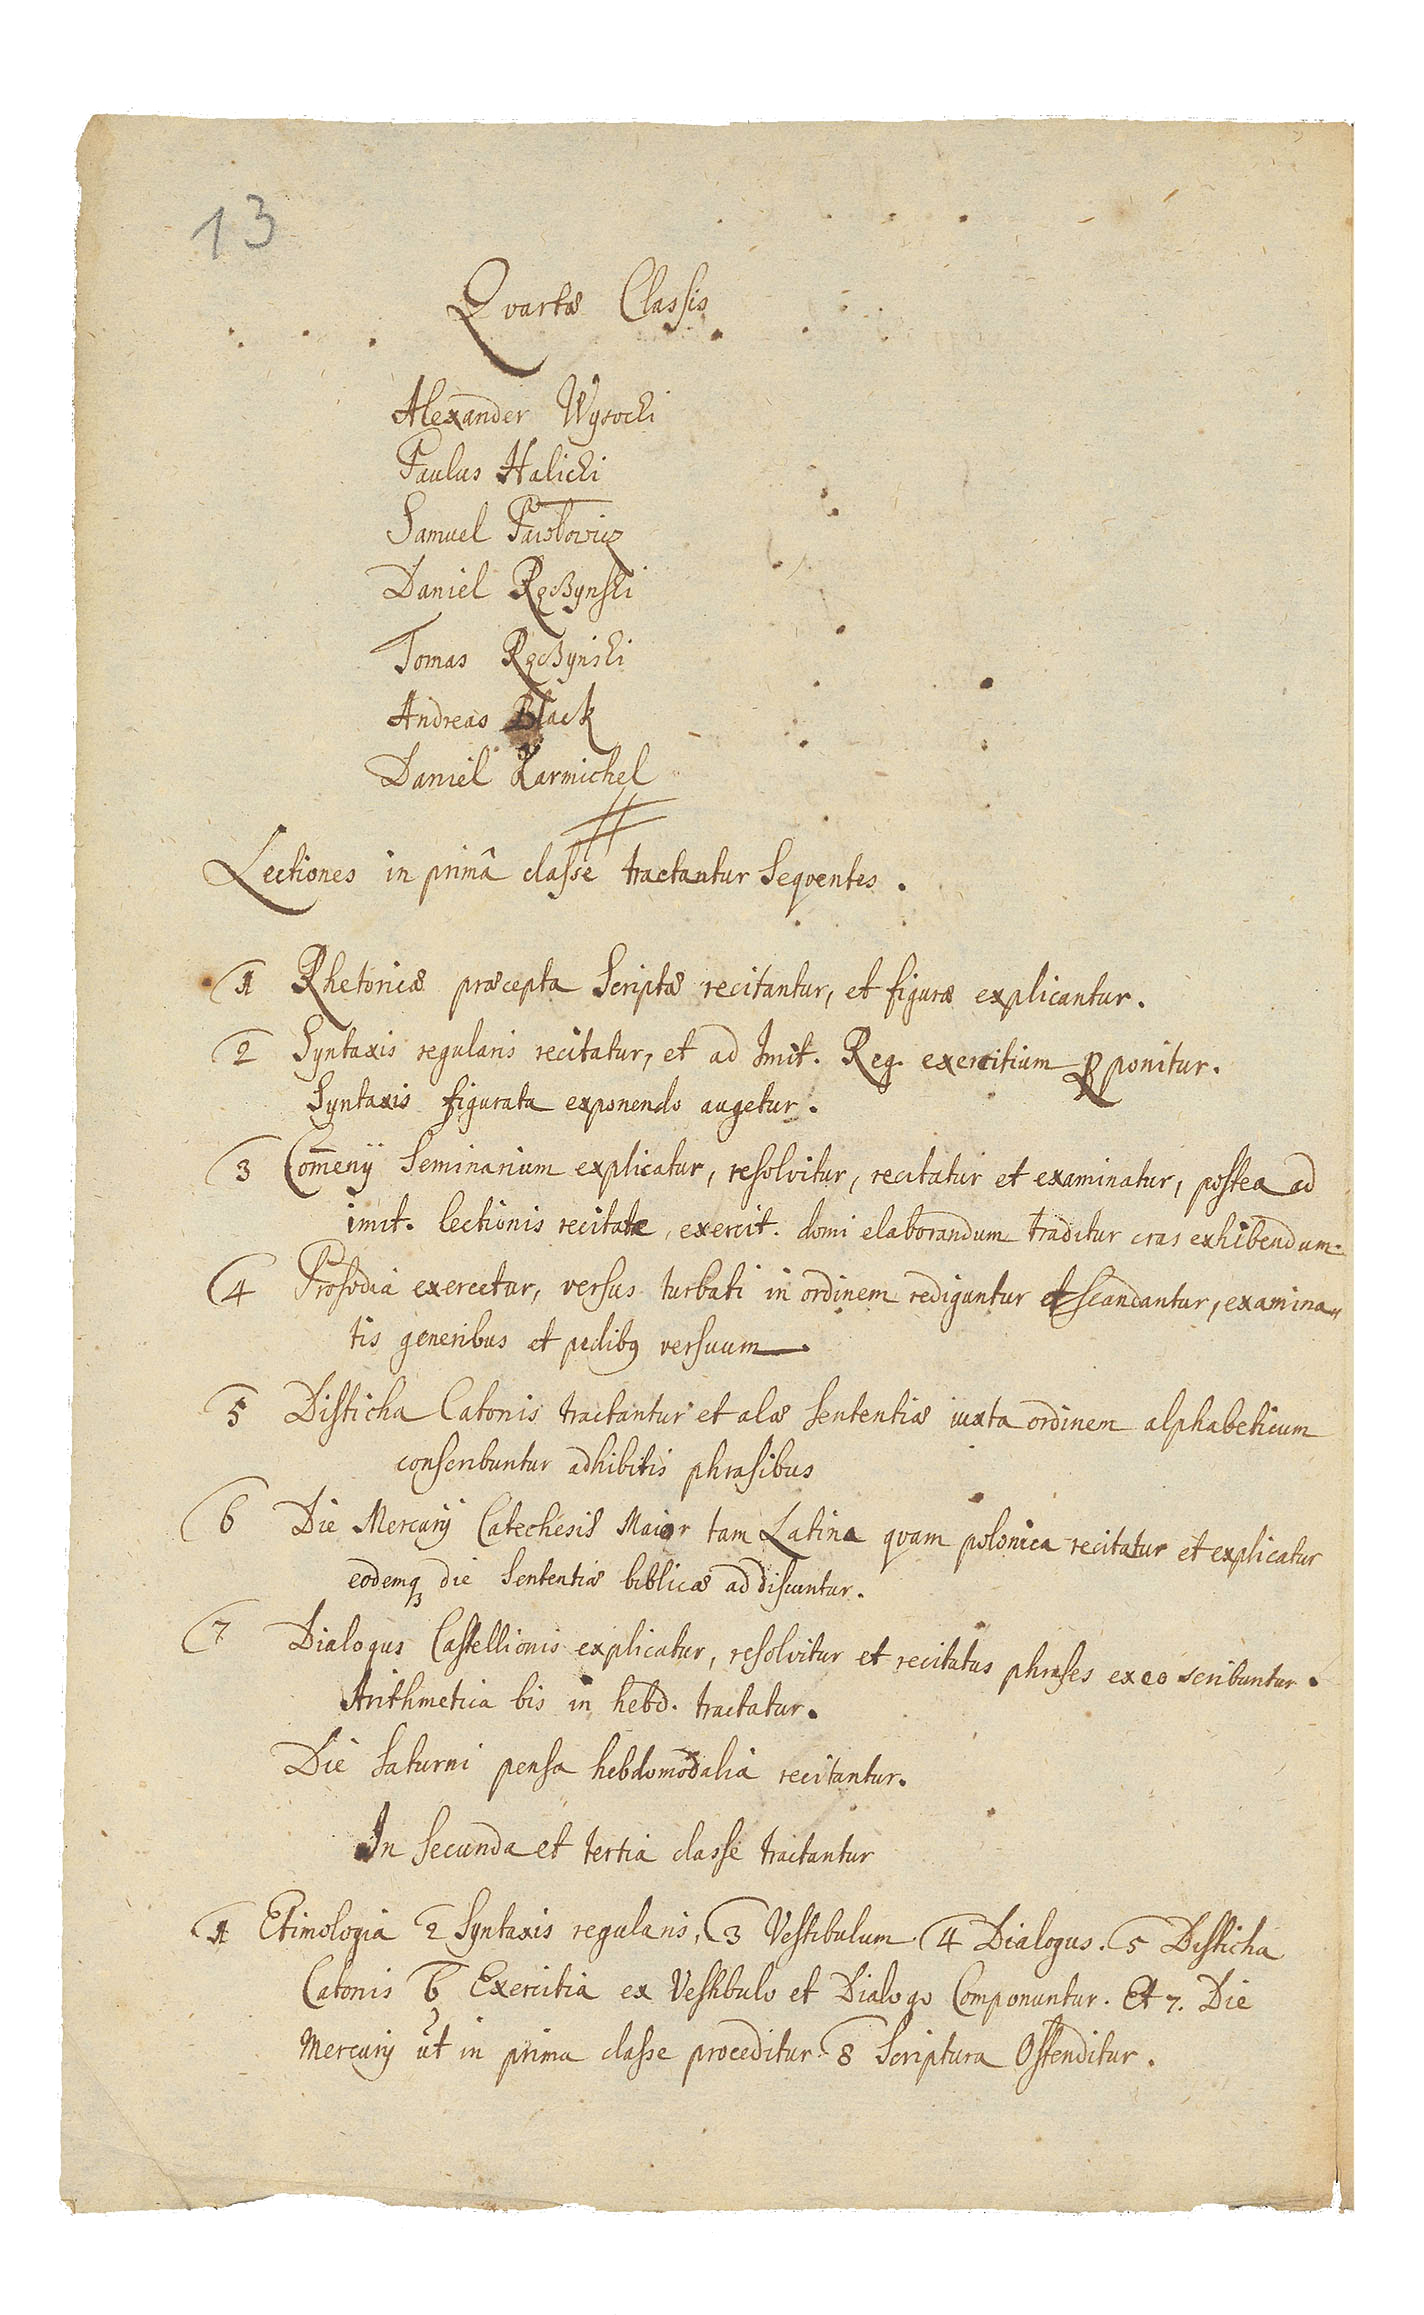 13
Qvartæ Classis
Alexander Wysocki
Paulus Halicki
Samuel
Daniel Ręczynski
Tomas Ręczynski
Andreas Black
Daniel Karmichel
Lectiones in primâ classe tractantur Seqventes.
1 Rhetoricæ præcepta Scriptæ recitantur, et figuræ explicantur.
2 Syntaxis regularis recitatur, et ad Imit. Reg. exercitium ponitur.
Syntaxis figurata exponendo augetur.
3 Com̄enij Seminarium explicatur, resolvitur, recitatur et examinatur, postea ad
imit. lectionis recitatæ, exercit. domi elaborandum traditur cras exhibendum.
4 Prosodia exercetur, versus turbati in ordinem rediguntur et scandantur, examina-
tis generibus et pedibꝰ versuum.
5 Disticha Catonis tractantur et alæ Sententiæ iuxta ordinem alphabeticum
conscribuntur adhibitis phrasibus
6 Die Mercurij Catechesis Maior tam Latina qvam polonica recitatur et explicatur
eodemq₃ die Sententiæ biblicæ addiscuntur.
7 Dialogus Castellionis explicatur, resolvitur et recitatus phrases ex eo scribuntur.
Arithmetica bis in hebd. tractatur.
Die Saturni pensa hebdomodalia recitantur.
In Secunda et tertia classe tractantur
1 Etimologia 2 Syntaxis regularis, 3 Vestibulum 4 Dialogus. 5 Disticha
Catonis 6 Exercitia ex Vestibulo et Dialogo Componuntur. Et 7. Die
Mercurij ut in prima classe proceditur 8 Scriptura Ostenditur.